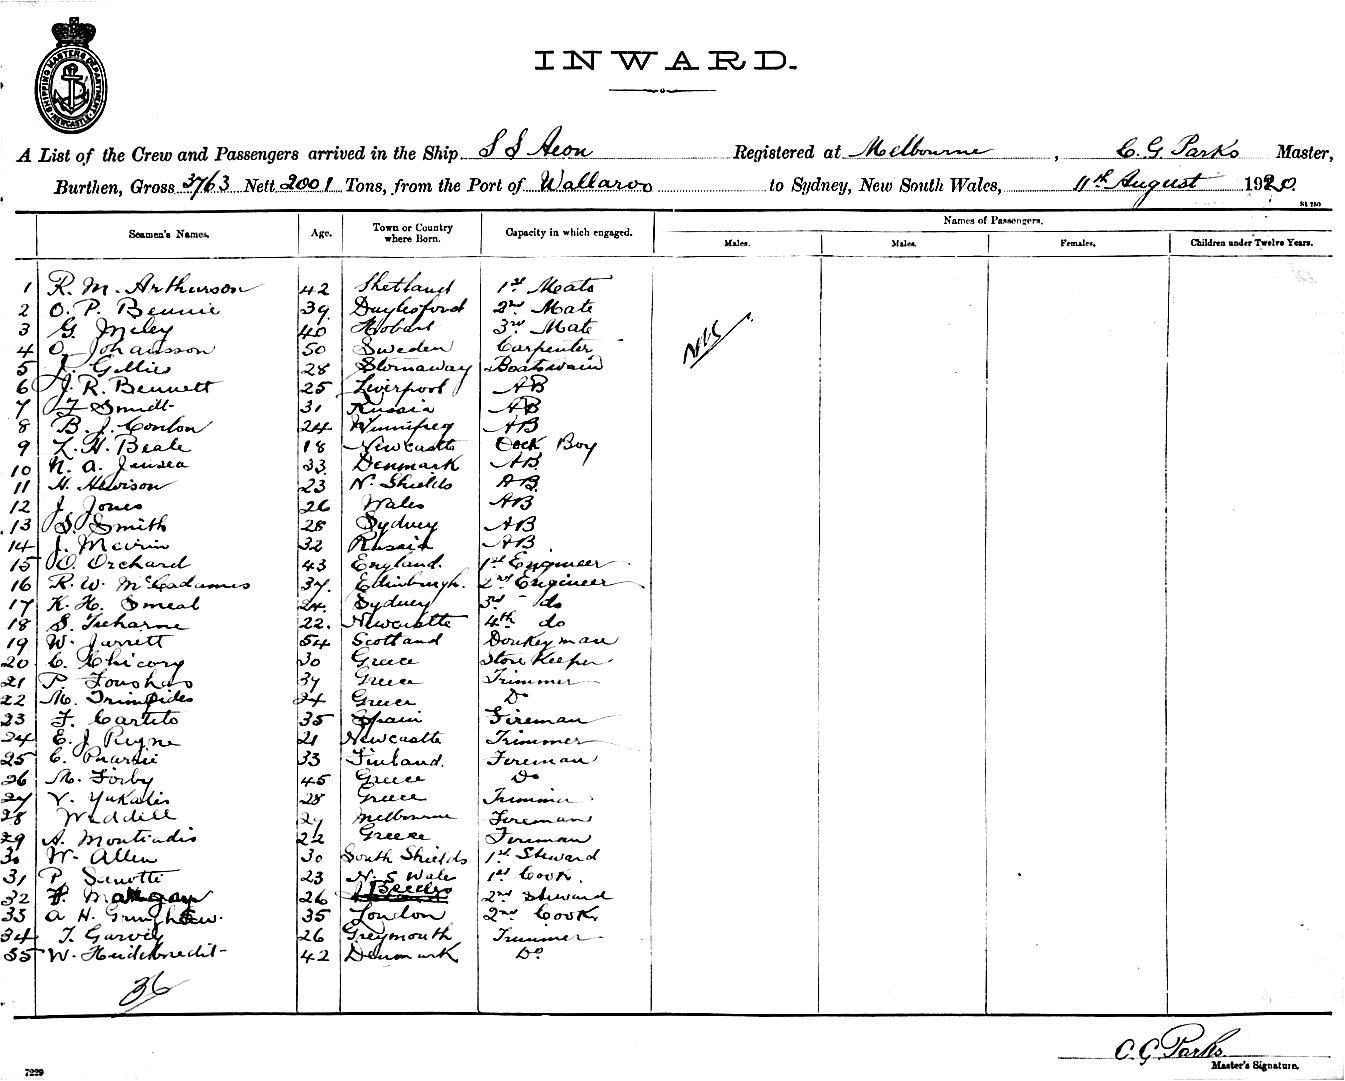 SHIPPING MASTERS DEPARTMENT NEWCASTLE
INWARD.
A List of the Crew and Passengers arrived in the Ship S S Aeon Registered at Melbourne, C. G. Parks Master,
Burthen, Gross 3763 Nett 2001 Tons, from the Port of Wallaroo to Sydney, New South Wales, 11th August 1920.
Seamen's Names. Age. Town or Country where Born. Capacity in which engaged. Names of Passengers.
Males. Males. Females. Children under Twelve Years.
1 R. M. Arthurson 42 Shetland 1st Mate
2 O. P. Bennie 39 Daylesford 2nd Mate
3 G. Miley 40 Hobart 3rd Mate
4 O. Johansson 50 Sweden Carpenter
Nil
5 J. Gillies 28 Stornaway Boatswain
6 J. R. Bennett 25 Liverpool AB
7 F Smidt 31 Russia AB
8 B. J. Conlon 24 Winnipeg AB
9 L. H. Beale 18 Newcastle Dock Boy
10 N. A. Jensen 33 Denmark AB.
11 H. Hewison 23 N. Shields AB.
12 J. Jones 26 Wales AB
13 S. Smith 28 Sydney AB
14 J. 32 Russia AB.
15 O. Orchard 43 England. 1st Engineer
16 R. W. McCadamis 37. Edinburgh. 2nd Engineer
17 K. H. Smeal 24. Sydney 3rd do
18 S. Treharne 22. Newcastle 4th do
19 W. Jarrett 54 Scotland Donkeyman
20 C. Chicory 30 Greece Store Keeper
21 P. 39 Greece Trimmer
22 M. 24 Greece Do
23 F. Cartito 35 Spain Fireman
24 E. J Payne 21 Newcastle Trimmer
25 C. 33 Finland. Fireman
26 M. Forby 45 Greece Do
27 V. Yukalis 28 Greece Trimmer
28 Waddell 29 Melbourne Fireman
29 A. Montiadis 22 Greece Fireman
30 W. Allen 30 South Shields 1st Steward
31 P. 23 N. S Wale 1st Cook.
32 F. 26 2nd Steward
33 A H. 35 London 2nd Cook
34 T. Garvey 26 Greymouth Trimmer
35 W. 42 Denmark Do
36
C. G. Parks.
Master's Signature.
7229